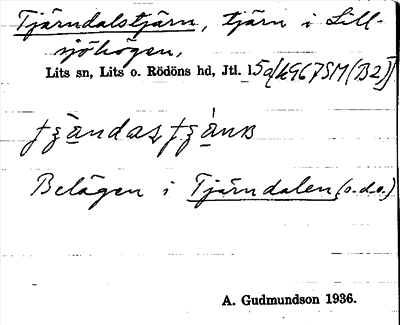 Tjärndalstjärn, tjärn i Lill-
sjöhögen,
Lits sn, Lits o. Rödöns hd, Jtl.
Belägen i Tjärndalen (o.d.o.)
A. Gudmundson 1936.